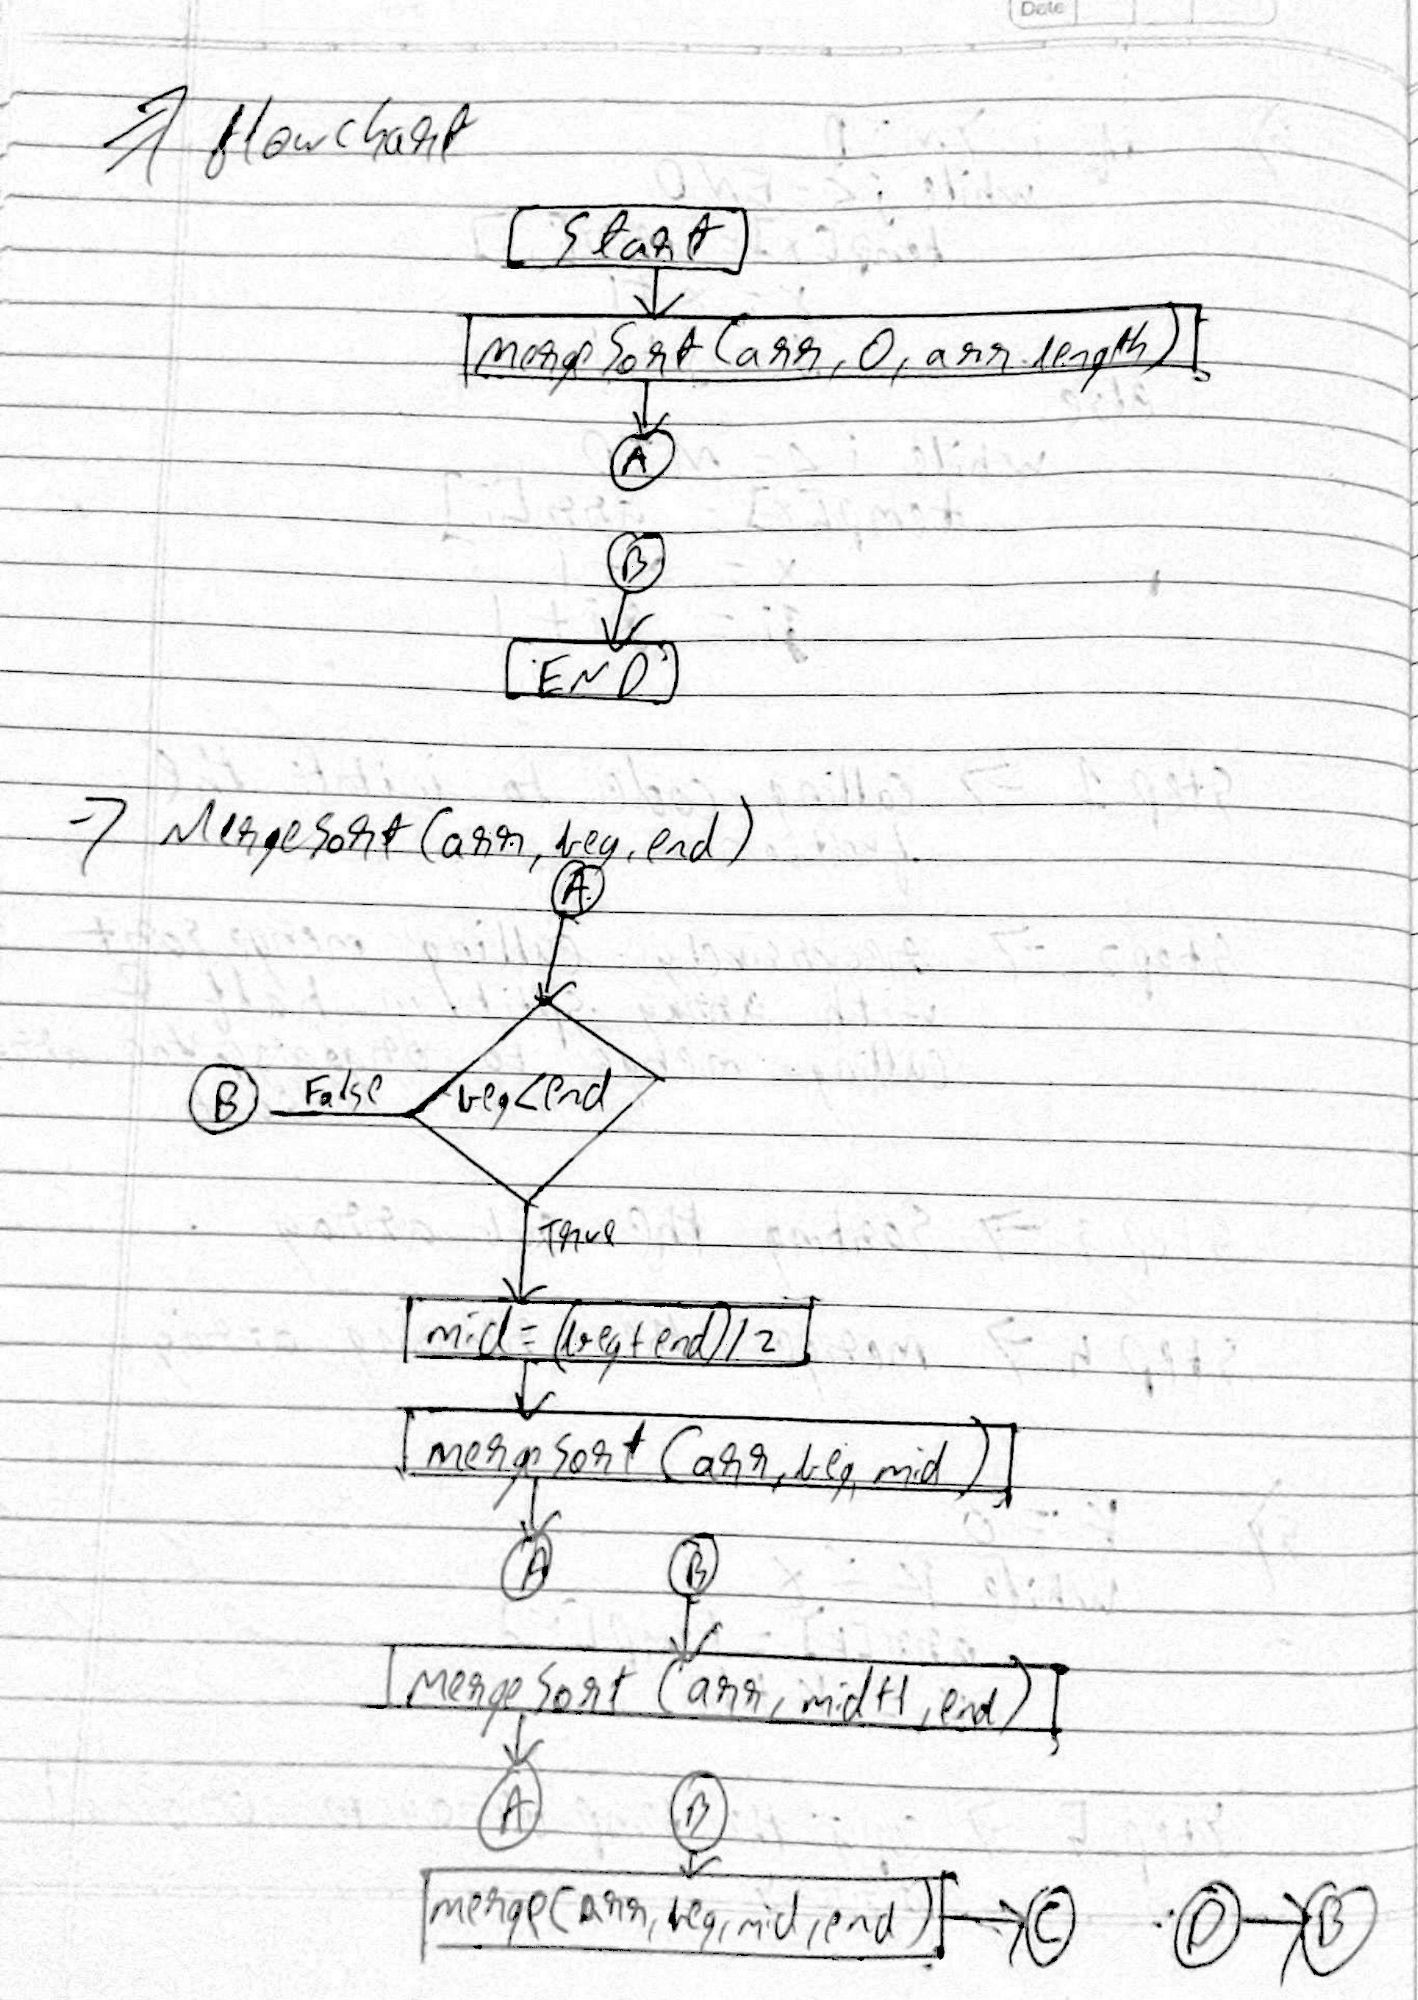 Date
=> flowchart
Start
mergeSort(arr, 0, arr.length)
A
B
END
=> MergeSort(arr, beg, end)
A
B False beg<end
True
mid = (beg + end)/2
mergeSort(arr, beg, mid)
A B
mergeSort(arr, mid+1, end)
A B
merge(arr, beg, mid, end) C D B